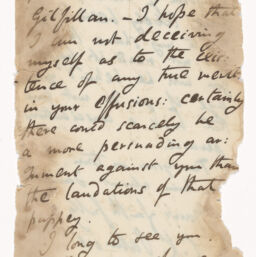 Gilfillan. — I hope that
I am not deceiving
myself as to the exis:
tence of any true merit
in your effusions: certainly
there could scarcely be
a more persuading ar:
gument against you than
the laudations of that
puppey.
I long to see you